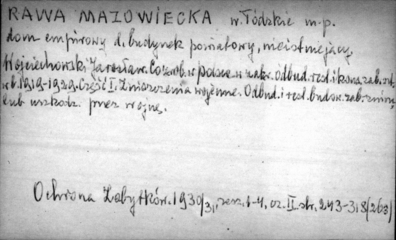 RAWA MAZOWIECKA w. Łódzkie m-p.
dom empirowy d. budynek powiatowy, nieistniejący
Wojciechowski Jarosław. Co zrob. w Polsce w zakr. odbud. rest. i kons. zab. arch.
w l. 1919-1929. Część I. Zniszczenia wojenne. Odbud. i rest. budow. zab. zniszcz.
lub uszkodz. przez wojnę.
Ochrona Zabytków. 1930/31, zesz. 1-4, cz. II. str. 243-318 (268)